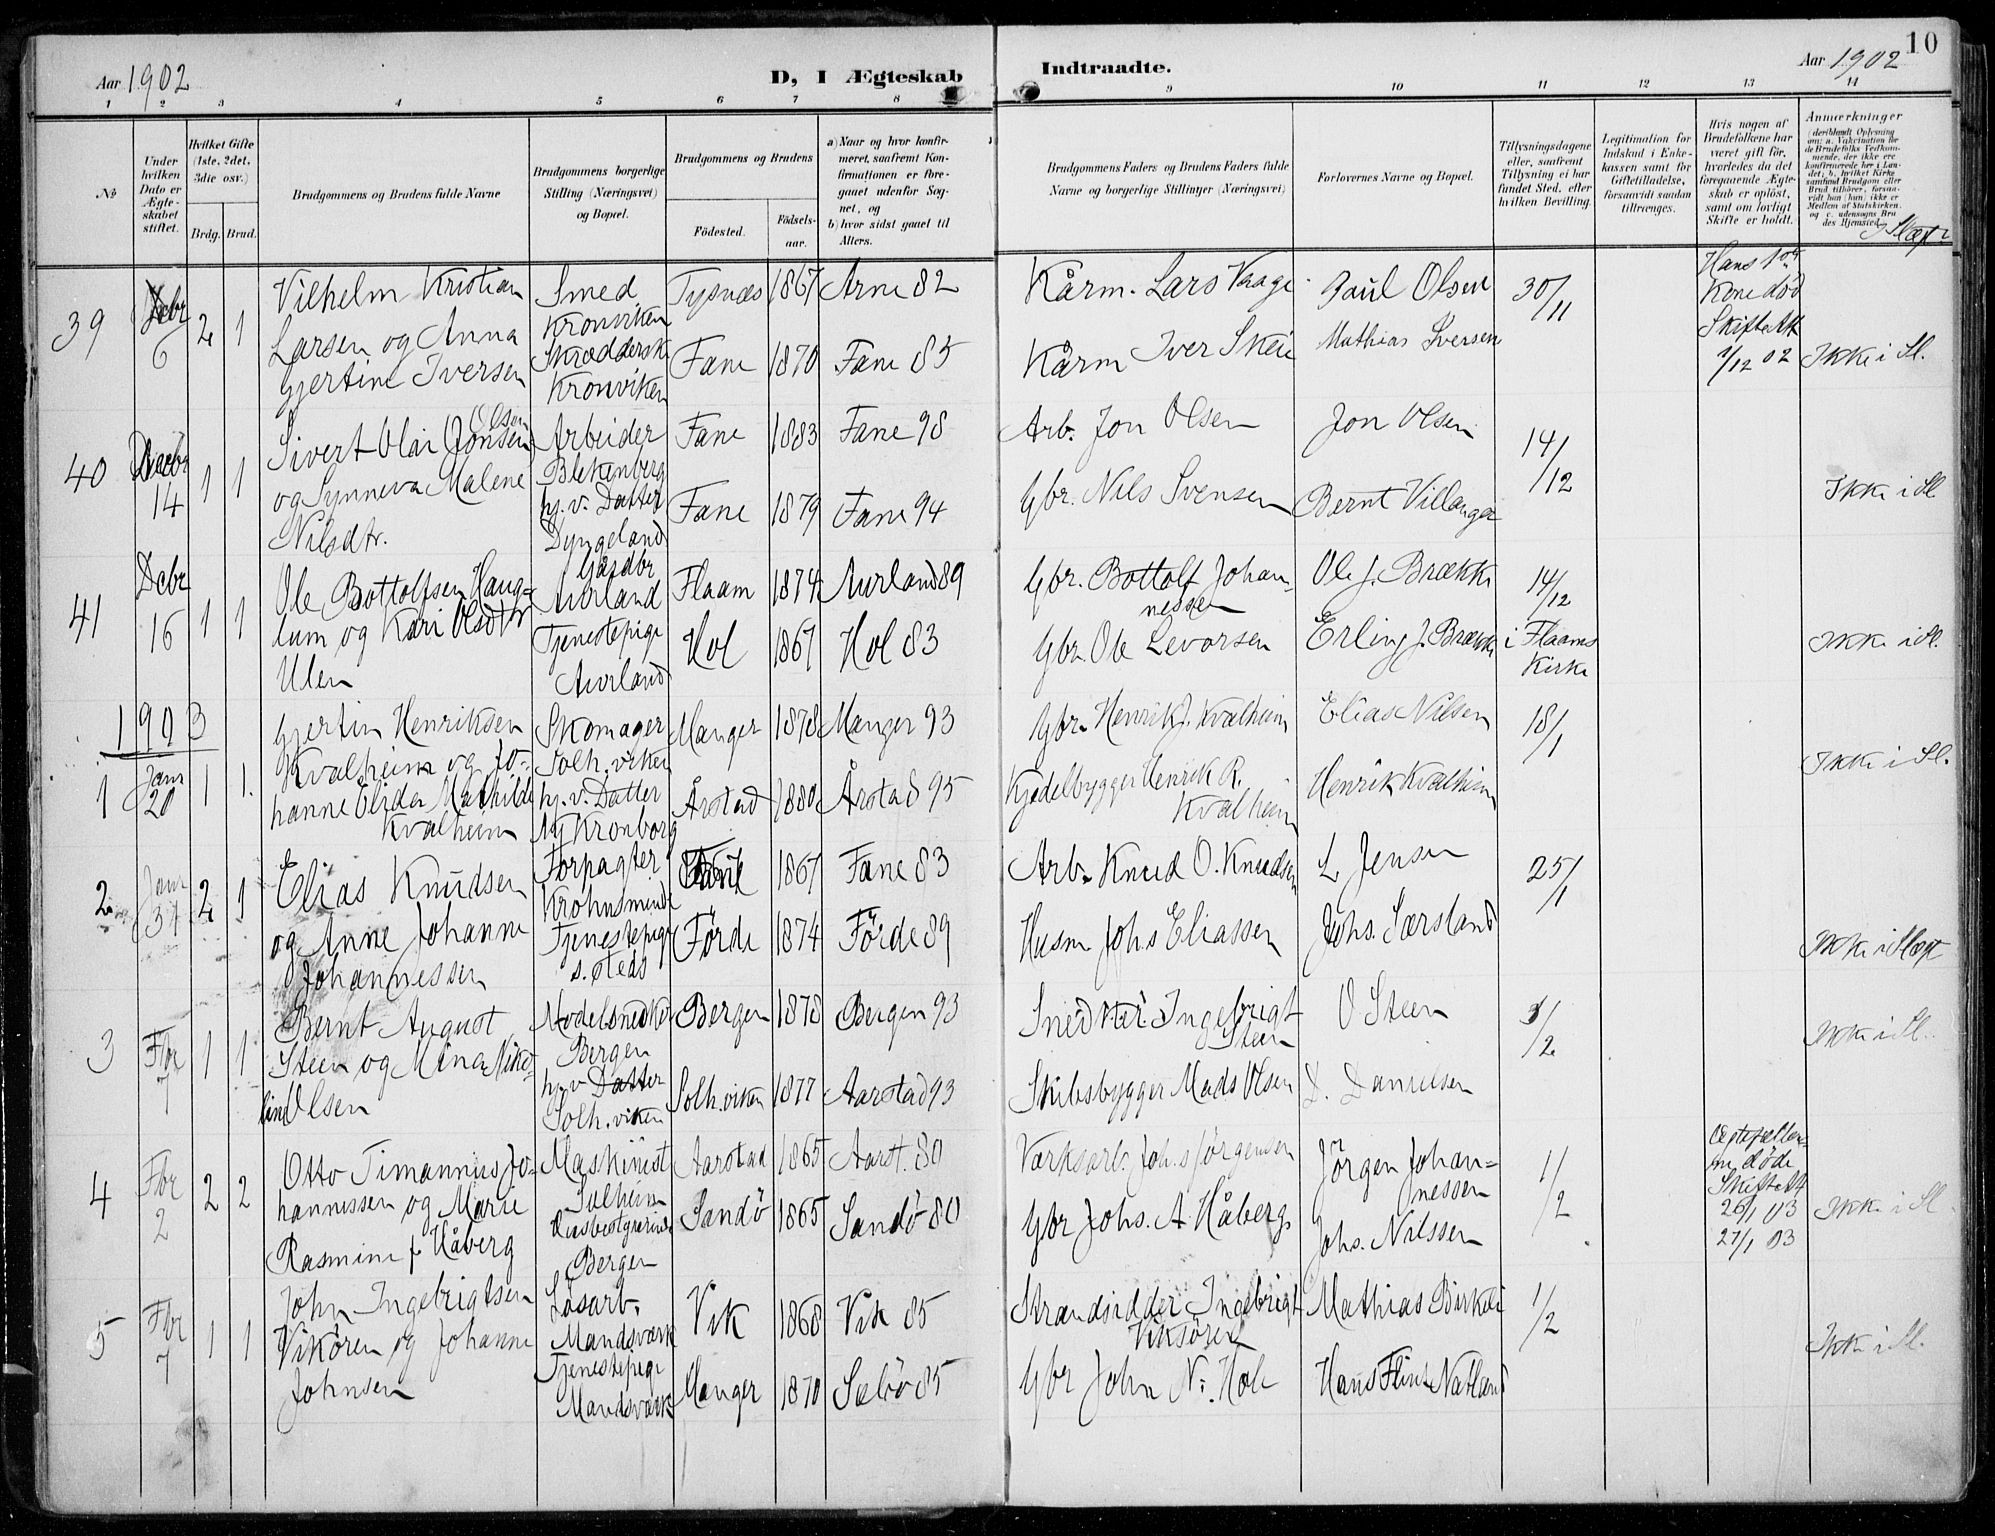 10
Aar 1902
D, I Ægteskab Indtraadte.
Aar 1902
1 2 3 4 5 6 7 8 9 10 11 12 13 14
№
Under hvilken Dato er Ægteskabet stiftet.
Hvilket Gifte (1ste, 2det, 3die osv.)
Brdg. Brud.
Brudgommens og Brudens fulde Navne
Brudgommens borgerlige Stilling (Næringsvei) og Bopæl.
Brudgommens og Brudens
Fødested.
Fødselsaar.
a) Naar og hvor konfirmeret, saafremt Konfirmationen er foregaaet udenfor Sognet, og
b) hvor sidst gaaet til Alters.
Brudgommens Faders og Brudens Faders fulde Navne og borgerlige Stillinger (Næringsvei)
Forlovernes Navne og Bopæl.
Tillysningsdagene eller, saafremt Tillysning ei har fundet Sted, efter hvilken Bevilling.
Legitimation for Indskud i Enkekassen samt for Giftetilladelse, forsaavidt saadan tiltrænges.
Hvis nogen af Brudefolkene har været gift før, hvorledes da det foregaaende Ægteskab er opløst, samt om lovligt Skifte er holdt.
Anmærkninger (deriblandt Oplysning om: a. Vakcination for de Brudefolks Vedkommende, der ikke ere konfirmerede her i Landet; b. hvilket Kirkesamfund Brudgom eller Brud tilhører, forsaavidt han (hun) ikke er Medlem af Statskirken, og c. udensogns Brudes Hjemsted.
i Slægt
39 Dcbr 6 2 1
Vilhelm Kristian Larsen og Anna Gjertine Iversen
Smed Kronviken
Skrædderske Kronviken
Tysnæs 1867 Arne 82
Fane 1870 Fane 85
Kårm. Lars Vaage
Kårm Iver Skei
Paul Olsen
Mathias Iversen
30/11
Hans 1ste Kone død Skifteatt 2/12 02
Ikke i Sl.
40 Decbr 14 1 1
Sivert Olai Jonsen Olsen og Synneva Malene Nilsdtr.
Arbeider Blekenberg
hj. v. Datter Dyngeland
Fane 1883 Fane 98
Fane 1879 Fane 94
Arb. Jon Olsen
Gbr. Nils Svensen
Jon Olsen
Bernt Villanger
14/12
Ikke i Sl
41 Dcbr 16 1 1
Ole Bottolfsen Hauglum og Kari Olsdtr Ulen
Gårdbr Aurland
Tjenestepige Aurland
Flaam 1874 Aurland 89
Hol 1867 Hol 83
Gbr. Bottolf Johannessen
Gbr. Ole Levorsen
Ole J. Brække
Erling J. Brække
14/12 i Flaams Kirke
Ikke i Sl.
1903
1 Janr 20 1 1.
Gjertin Henriksen Kvalheim og Johanne Elida Mathilde Kvalheim
Skomager Solh.viken
hj. v. Datter Ny Kronborg
Manger 1878 Manger 93
Årstad 1880 Årstad 95
Gbr. Henrik J. Kvalheim
Kjedelbygger Henrik R. Kvalheim
Elias Nilsen
Henrik Kvalheim
18/1
Ikke i Sl.
2 Janr 31 2 1
Elias Knudsen og Anne Johanne Johannessen
Forpagter Krohnsminde
Tjenestepige s. steds
1867 Fane 83
Förde 1874 Förde 89
Arb. Knud O. Knudsen
Husm Johs Eliassen
L Jensen
Johs. Særsland
25/1
Ikke i Slægt
3 Fbr 7 1 1
Bernt August Steen og Mina Nikoline Olsen
Modelsnedker Bergen
hj. v Datter Solh.viken
Bergen 1878 Bergen 93
Solh.viken 1877 Aarstad 93
Snedker Ingebrigt Steen
Skibsbygger Mads Olsen
O Steen
D. Danielsen
1/2
Ikke i Sl.
4 Fbr 2 2 2
Otto Timannus Johannessen og Marie Rasmine f Håberg
Maskinist Solheim
Bergen
Aarstad 1865 Aarst. 80
Sandö 1865 Sandö 80
Værksarb. Johs Jørgensen
Gbr Johs. A Håberg
Jörgen Johannessen
Johs. Nilssen
1/2
Ægtefællerne døde Skifteatt 26/1 03 27/1 03
Ikke i Sl.
5 Fbr 7 1 1
John Ingebrigtsen Vikören og Johanne Johnsen
Løsarb. Mandsværk
Tjenestepige Mandsværk
Vik 1868 Vik 85
Manger 1870 Sæbö 85
Strandsidder Ingebrigt Viksören
Gbr John N. Hole
Mathias Birkeli
Hans Flint Natland
1/2
Ikke i Sl.